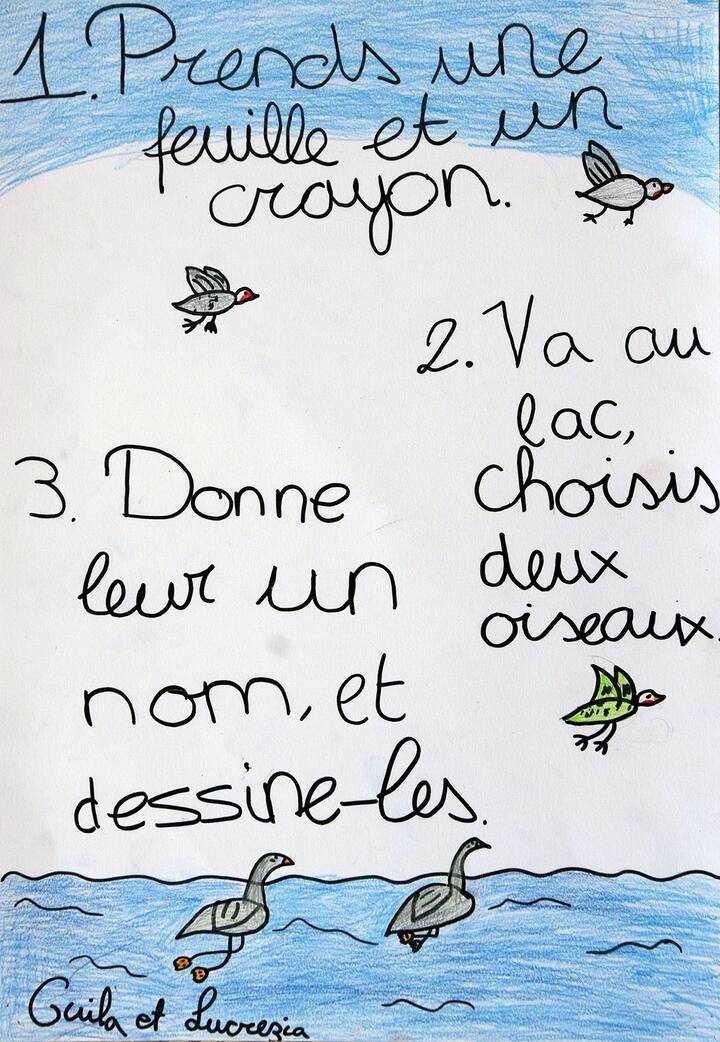 1. Prends une
feuille et un
crayon.
2. Va au
lac,
choisis
deux
oiseaux.
3. Donne
leur un
nom, et
dessine-les.
Guila et Lucrezia